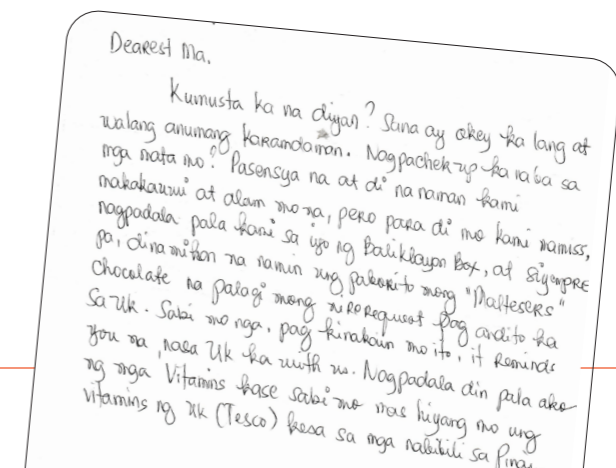 Dearest Ma,
Kumusta ka na diyan? Sana ay okey ka lang at
walang anumang karamdaman. Nagpachek-up ka na ba sa
mga mata mo? Pasensya na at di na naman kami
makakauwi at alam mo na, pero para di mo kami mamiss,
nagpadala pala kami sa iyo ng Balikbayan Box, at siyempre
pa, dinamihan na namin ung paborito mong "Maltesers"
chocolate na palagi mong nirerequest pag andito ka
sa UK. Sabi mo nga, pag kinakain mo ito, it reminds
you na, nasa UK ka with us. Nagpadala din pala ako
ng mga Vitamins kase sabi mo mas hiyang mo ung
vitamins ng UK (Tesco) kesa sa mga nabibili sa Pinas